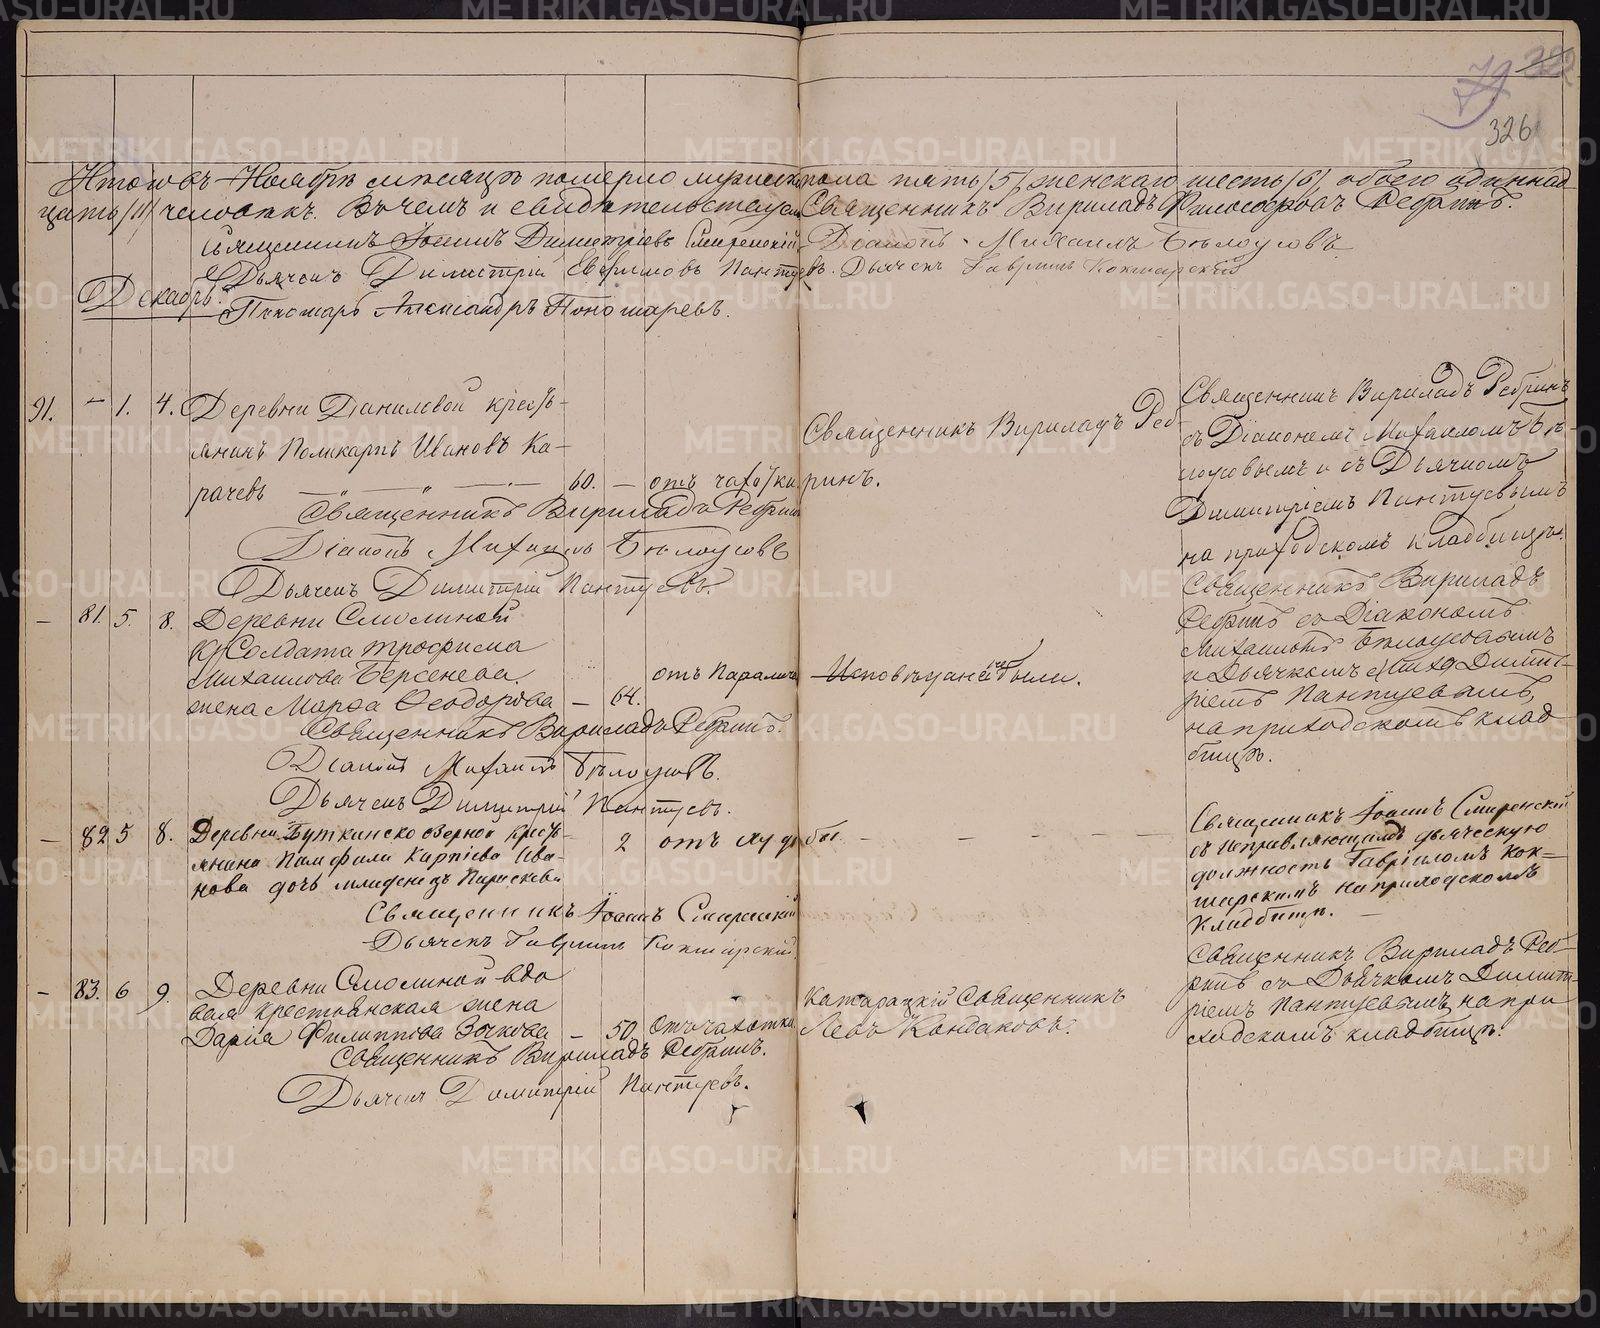 79
326
Итого въ Ноябрѣ мѣсяцѣ померло мужеска пола пять /5/, женскаго шесть /6/, обоего одиннад-
цать /11/ человѣкъ. Въ чемъ и свидѣтельствуемъ Священникъ Вириладъ Философовъ Ребринъ.
Священникъ Іоаннъ Димитріевъ Смиренскій Діаконъ Михаилъ Бѣлоусовъ
Дьячекъ Димитрій Евфимовъ Пантуевъ. Дьячекъ Гавріилъ Кокшарскій
Декабрь.
Пономарь Александръ Пономаревъ.
91. — 1. 4. Деревни Даниловой кресть-
янинъ Поликарпъ Ивановъ Ка-
рачевъ 60. — отъ чахотки
Священникъ Вириладъ Реб-
ринъ.
Священникъ Вириладъ Ребринъ
съ Діакономъ Михаиломъ Бѣ-
лоусовымъ и съ Дьячкомъ
Димитріемъ Пантуевымъ
на приходскомъ кладбищѣ.
Священникъ Вириладъ Ребринъ
Діаконъ Михаилъ Бѣлоусовъ
Дьячекъ Димитрій Пантуевъ.
— 81. 5. 8. Деревни Смолиной
Солдата Трофима
Михаилова Берсенева
жена Марѳа Ѳеодорова — 64.
отъ Паралича
Исповѣдана не были.
Священникъ Вириладъ
Ребринъ съ Діакономъ
Михаиломъ Бѣлоусовымъ
и Дьячкомъ Димит-
ріемъ Пантуевымъ,
на приходскомъ клад
бищѣ.
Священникъ Вириладъ Ребринъ.
Діаконъ Михаилъ Бѣлоусовъ.
Дьячекъ Димитрій Пантуевъ.
— 82 5 8. Деревни Буткинско озерной кресть-
янина Памфила Карпіева Ива-
нова дочь младенецъ Параскева
2 отъ худобы. — — — —
Священникъ Іоаннъ Смиренскій
съ исправляющимъ дьяческую
должность Гавріиломъ Кок-
шарскимъ на приходскомъ
Кладбищѣ. —
Священникъ Іоаннъ Смиренскій
Дьячекъ Гавріилъ Кокшарскій.
— 83. 6 9. Деревни Смолиной вдо
вая крестьянская жена
Дарія Филиппова Зыкова — 50. отъ чахотки
Катарацкій Священникъ
Левъ Кондаковъ.
Священникъ Вириладъ Реб-
ринъ съ Дьячкомъ Димит-
ріемъ Пантуевымъ на при
ходскомъ кладбищѣ.
Священникъ Вириладъ Ребринъ.
Дьячекъ Димитрій Пантуевъ.